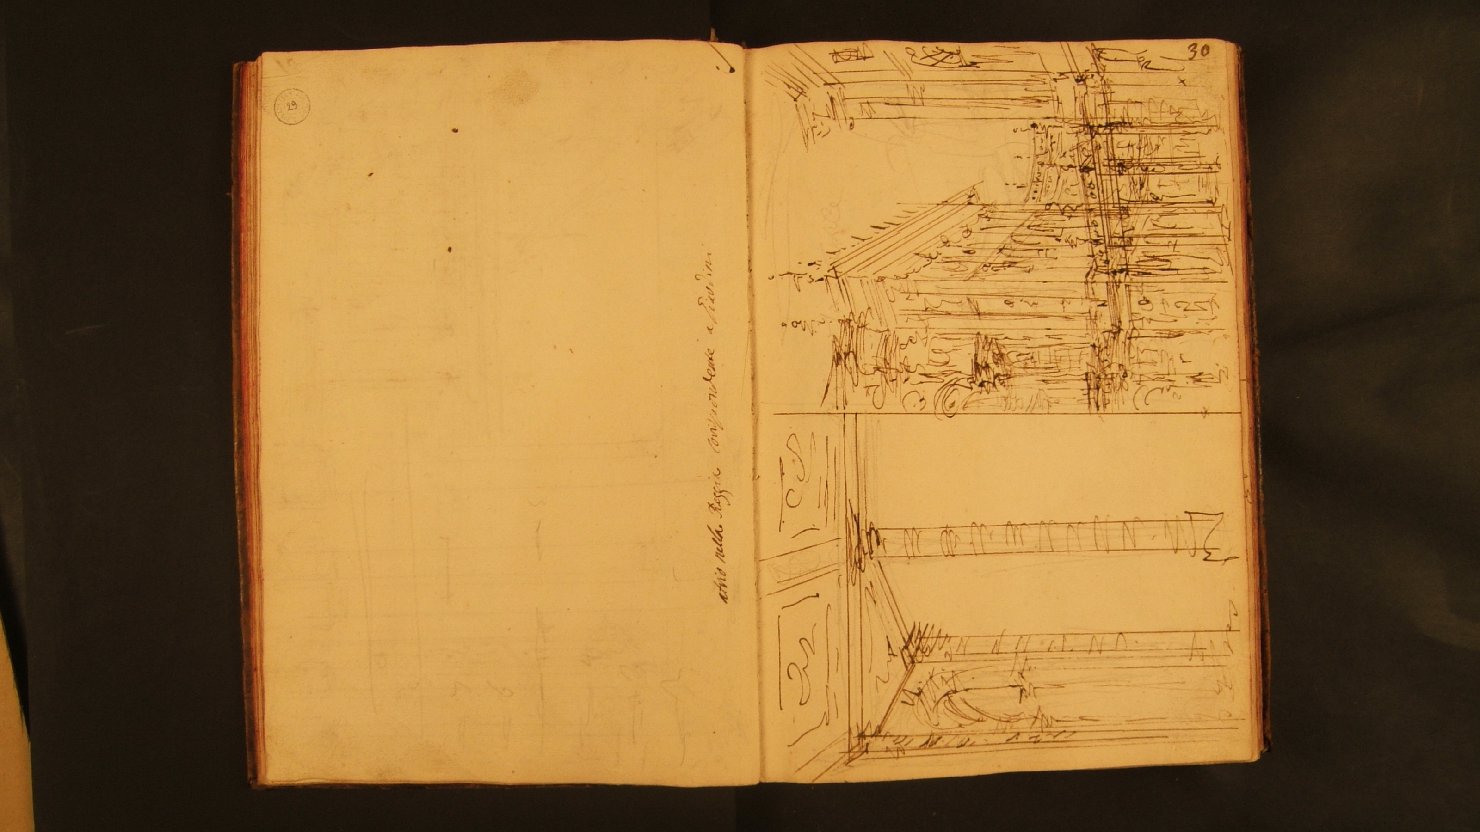 29
30
atrio nella Reggia corrispondente a Giardini